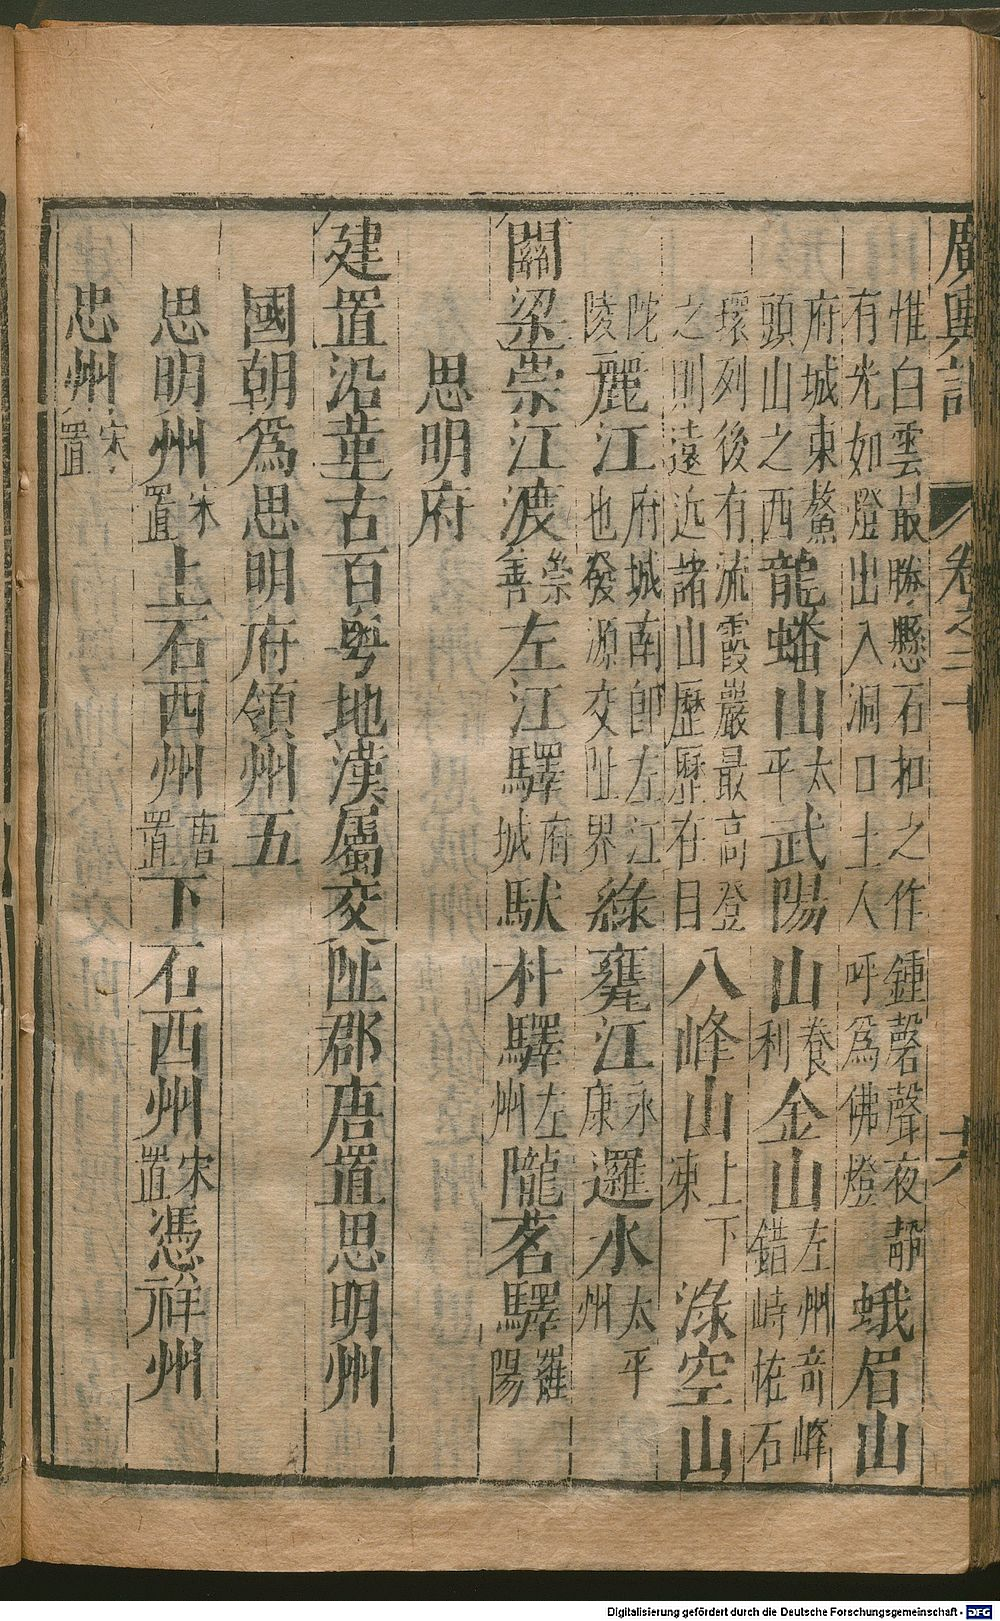 廣輿記 卷之二十 十六
惟白雲最勝懸石扣之作鍾磬聲夜靜
有光如燈出入洞口土人呼爲佛燈
蛾眉山
府城東鰲
頭山之西
龍蟠山
太
平
武陽山
養
利
金山
左州奇峰
錯峙恠石
環列後有流霞巖最高登
之則遠近諸山歷歷在目
八峰山
上下
凍
淥空山
陀
陵
麗江
府城南卽左江
也發源交趾界
綠甕江
永
康
邏水
太平
州
關梁崇江渡
崇
善
左江驛
府
城
馱朴驛
左
州
隴茗驛
羅
陽
思明府
建置沿革古百粵地漢屬交阯郡唐置思明州
國朝爲思明府領州五
思明州
宋
置
上石西州
唐
置
下石西州
宋
置
憑祥州
忠州
宋
置
Digitalisierung gefördert durch die Deutsche Forschungsgemeinschaft - DFG